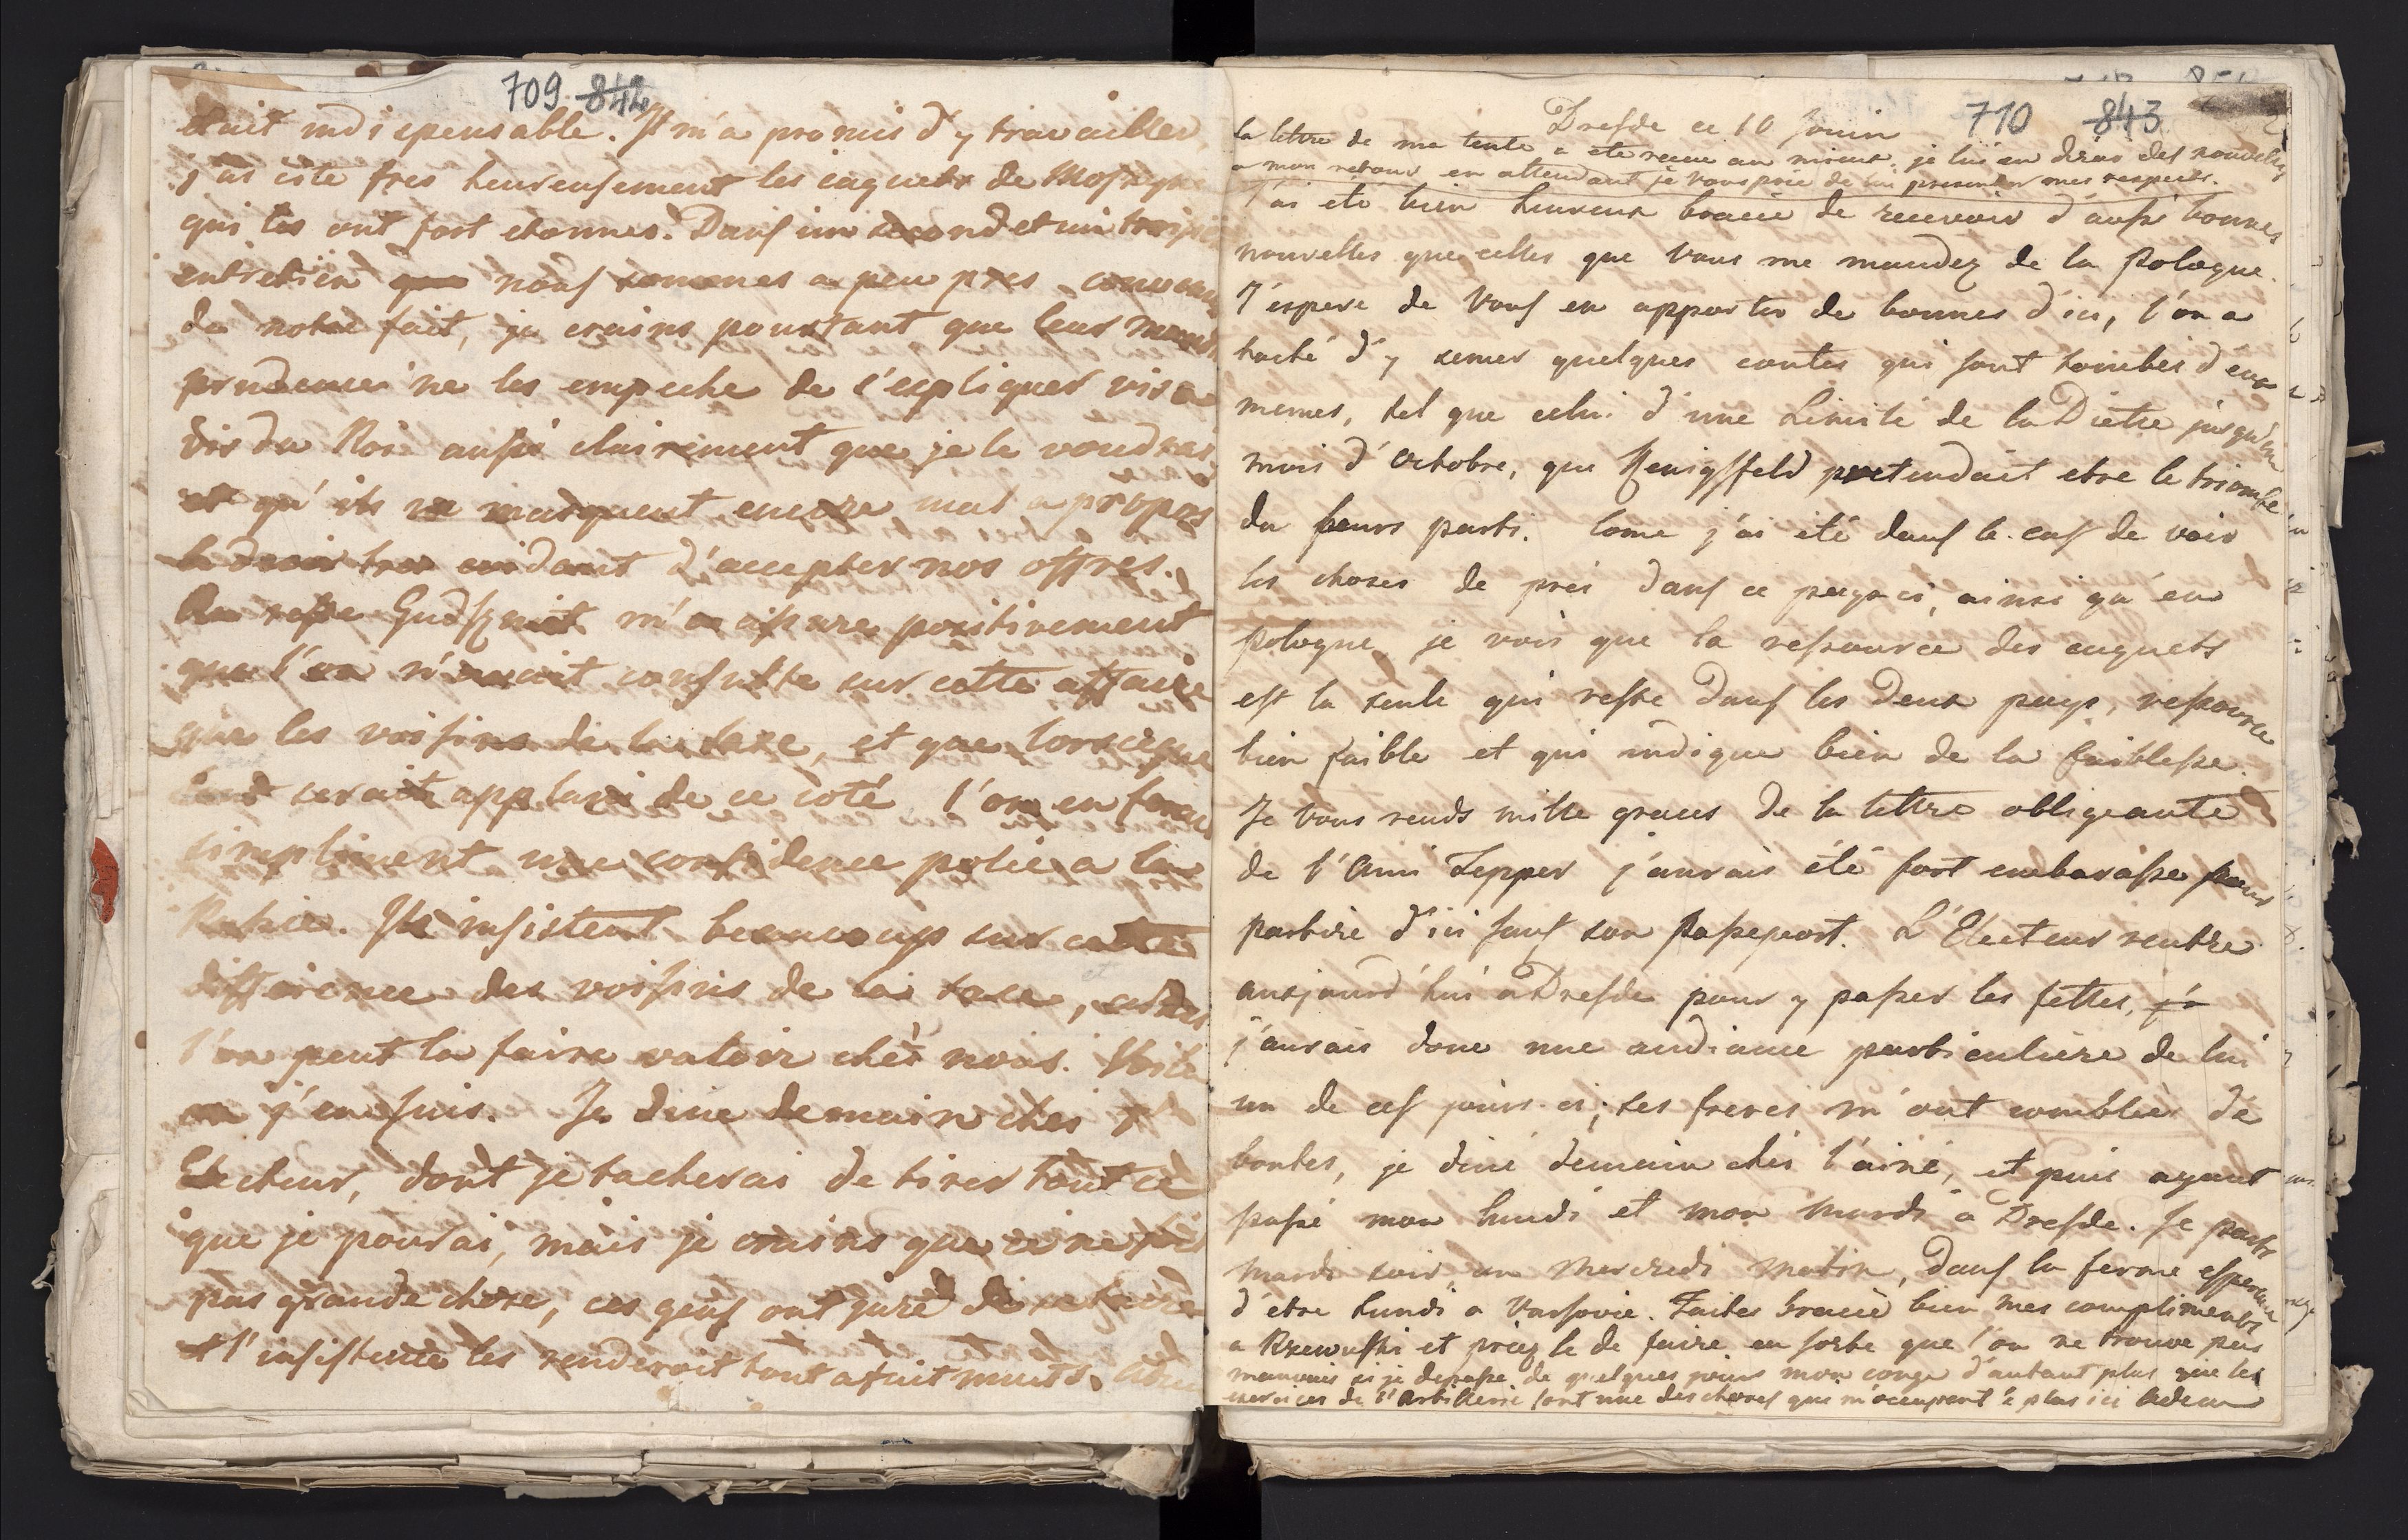 709 842
était indispensable. Il m'a promis d'y travailler,
j'ai cité fres heureusement les caquets de
qui les ont fort etonnes. Dans un second et un
entretien que nous somenes a peu pres
de notre fait, je crains pourtant que leur
prudence ne les empeche de s'expliquer vis a
vis du Roi aussi clairement que je le voudrai
et qu'ils ne marquent encore mal a propos
d'accepter nos offres.
Au reste m'a assure positivement
que l'on n'avait consulte sur cette affaire
que les voisins de la Saxe, et que lorsceque
tout serait applani de ce coté l'on en ferait
simplement une confidence polie a la
Russie. Ils insistent beaucoup sur cette
difference des voisins de la Saxe,
l'on peut la faire valoir chés nous. Voila
ou j'en suis. Je dine demain ches l'
Electeur, dont je tacherai de tirer tout ce
que je pourai, mais je crains que ce ne soit
pas grande chose, ces gens ont juré de se taire
et l'insistence les renderoit tout a fait muets.
710 843
Dresde ce 10 Juin
la lettre de ma tente a ete recue au mieux, je lui en dirai des nouvelles
a mon retour en attendant je vous prie de lui presenter mes respects.
J'ai été bien heureux de recevoir d'aussi bonnes
nouvelles que celles que vous me mandez de la Pologne.
J'espere de vous en apporter de bonnes d'ici, l'on a
taché d'y semer quelques contes qui sont tombés d'eux
memes, tel que celui d'une Limite de la Diette jusqu'au
mois d'Octobre, que pretendait etre le triomfe
du parti. Come j'ai été dans le cas de voir
les choses de prés dans ce pays ci, ainsi qu'en
Pologne je vois que la ressource des caquets
est la seule qui reste dans les deux pays, ressource
bien faible et qui indique bien de la faiblesse.
Je vous rends mille graces de la lettre obligeante
de l'ami Tepper j'aurais été fort embarasse pour
partire d'ici sans son Passeport. L'Electeur rentre
aujourd'hui a Dresde pour y passer les fettes, j'a
j'aurais donc une audiance particuliere de lui
un de ces jours ci; ses freres m'ont comblés de
bontes, je dine demain chés l'ainé, et puis ayant
passé mon Lundi et mon Mardi a Dresde. Je parts
Mardi soir, ou Mercredi Matin, dans la ferme esperence
d'etre Lundi a Varsovie. Faites bien mes compliments
a Rzewuski et priez le de faire en sorte que l'on ne trouve pas
mauvais si je depasse de quelques jours mon conge d'autant plus que les
exercices de l'Artillerie sont une des choses que m'occupent le plus ici